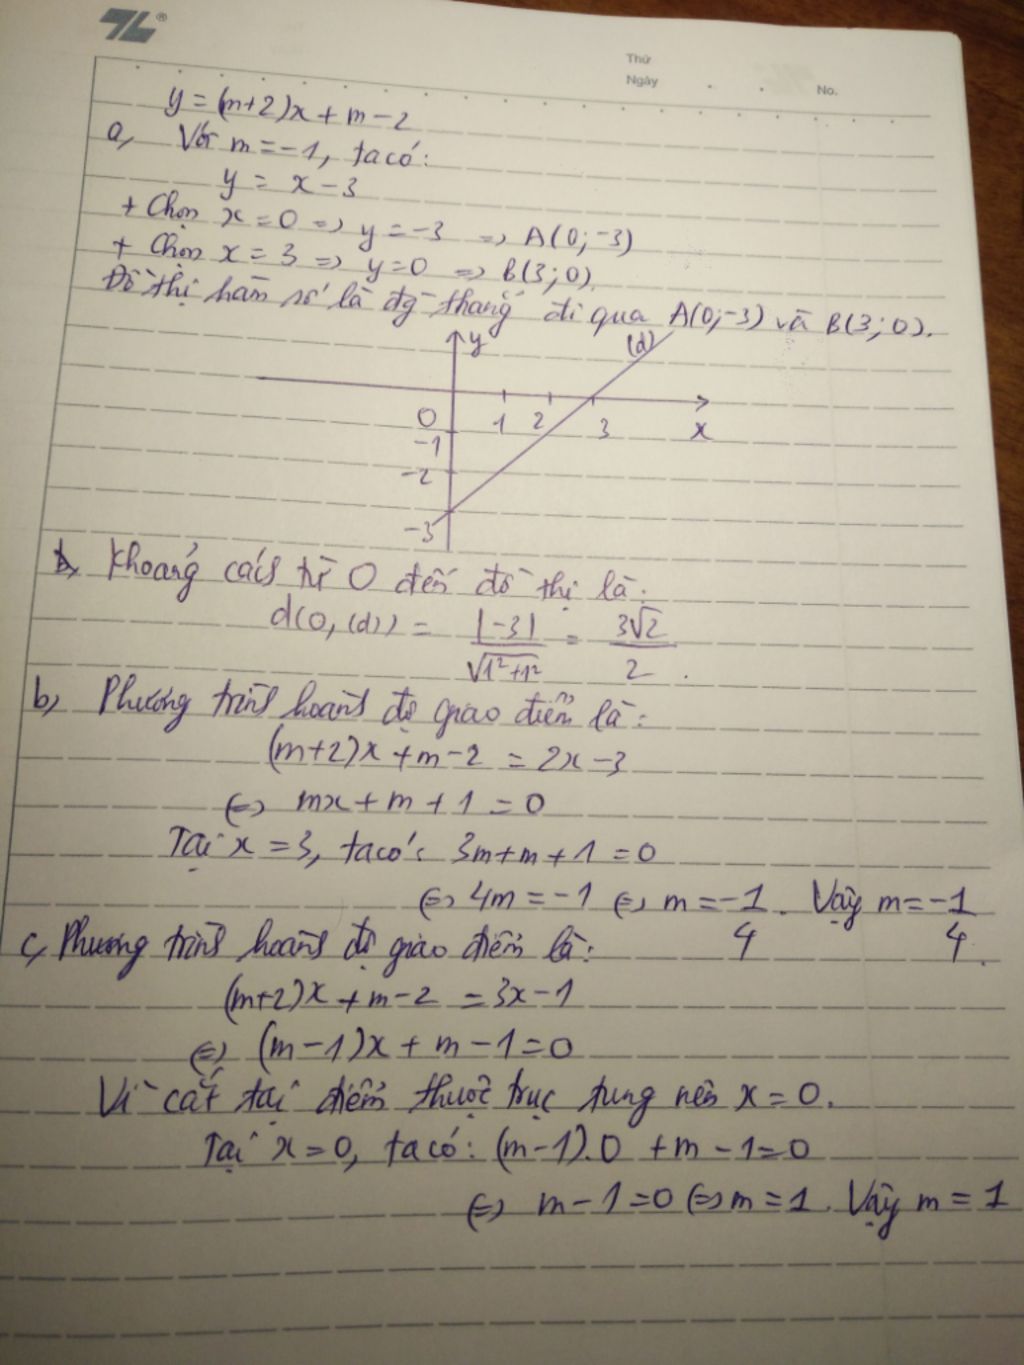 TL®
Thứ
Ngày
No.
y = (m+2)x + m - 2
a, Với m = -1, ta có:
y = x - 3
+ Chọn x = 0 => y = -3 => A(0; -3)
+ Chọn x = 3 => y = 0 => B(3; 0).
Đồ thị hàm số là đg thẳng đi qua A(0;-3) và B(3; 0).
y
(d)
0
1 2 3 x
-1
-2
-3
Khoảng cách từ O đến đồ thị là:
d(O, (d)) = |-3| / √1²+1² = 3√2 / 2.
b, Phương trình hoành độ giao điểm là:
(m+2)x + m - 2 = 2x - 3
<=> mx + m + 1 = 0
Tại x = 3, ta có: 3m + m + 1 = 0
<=> 4m = -1 <=> m = -1/4. Vậy m = -1/4.
c, Phương trình hoành độ giao điểm là:
(m+2)x + m - 2 = 3x - 1
<=> (m-1)x + m - 1 = 0
Vì cắt tại điểm thuộc trục tung nên x = 0.
Tại x = 0, ta có: (m-1).0 + m - 1 = 0
<=> m - 1 = 0 <=> m = 1. Vậy m = 1